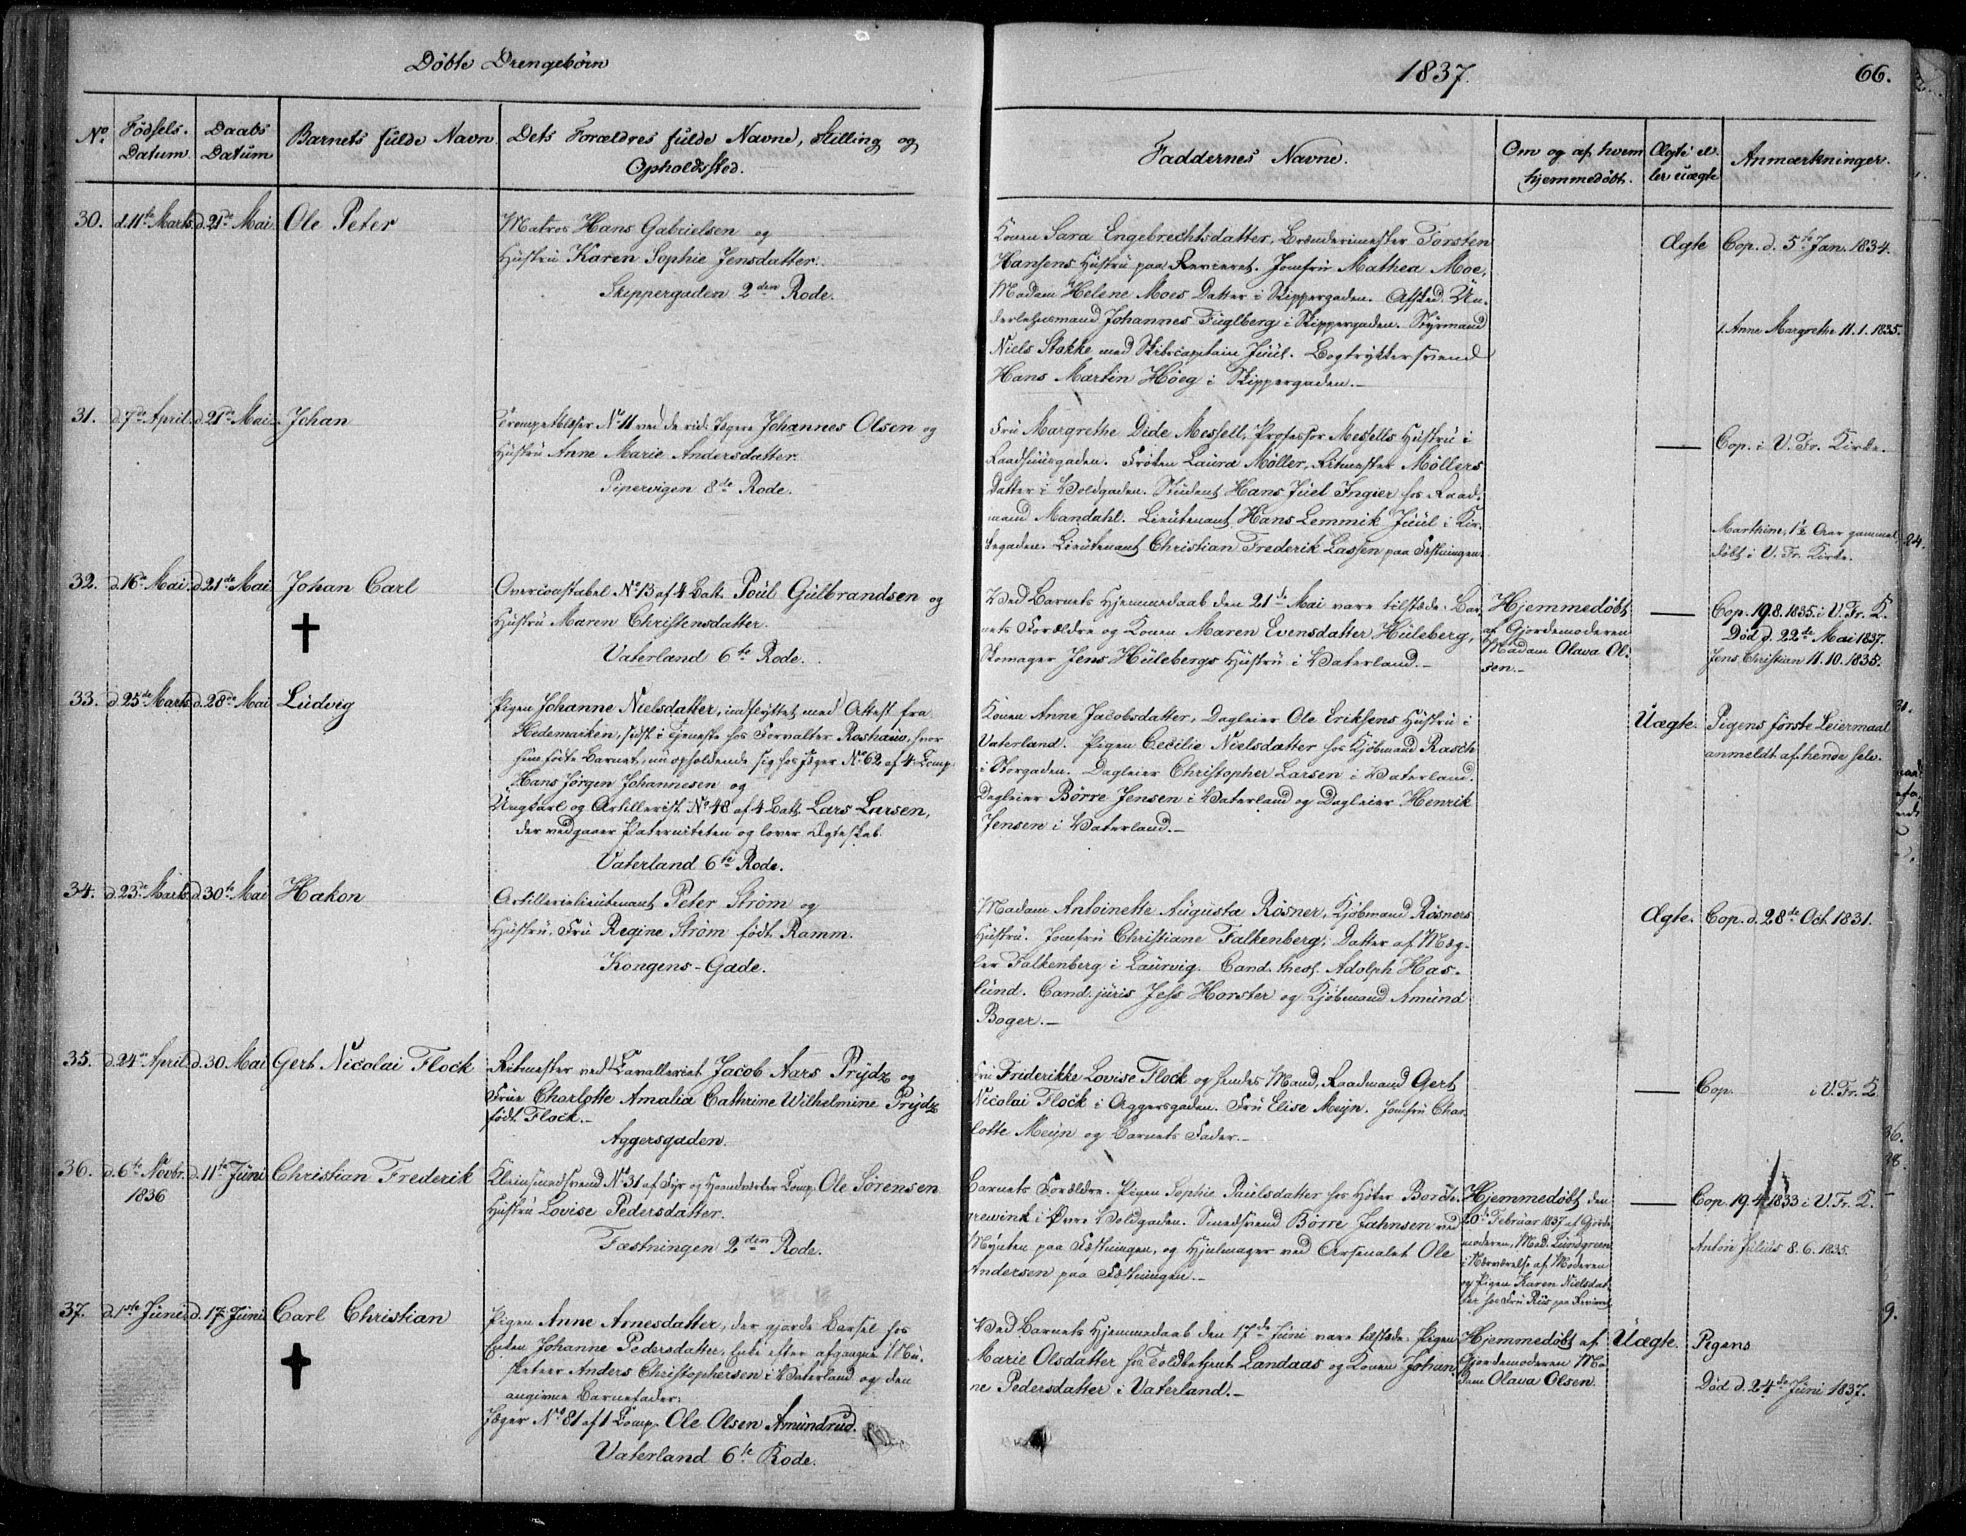 Døbte Drengebørn
1837.
66.
No.
Fødsels-
Datum
Daabs
Datum
Barnets fulde Navn
Dets Forældres fulde Navne, Stilling og
Opholdssted.
Faddernes Navne.
Om og af hvem
hjemmedøbt.
Ægte el-
ler uægte
Anmærkninger.
30. d. 11te Marts d. 21de Mai Ole Peter
Matros Hans Gabrielsen og
Hustru Karen Sophie Jensdatter.
Skippergaden 2den Rode.
Konen Sara Engebrechtsdatter, Brænderimester Torsten
Hansens Hustru paa Revieret. Jomfru Mathea Moe,
Madam Helene Moes Datter i Skippergaden. Afsked. Un-
derlehnsmand Johannes Fuglberg i Skippergaden. Styrmand
Niels Stakke med Skibscapitain Juul. Bogtrykkersvend
Hans Martin Høeg i Skippergaden.—
Ægte
Cop. d. 5te Jan. 1834.
1. Anne Margrethe 11.1.1835.
31. d. 7de April d. 21de Mai Johan
Trompetblæser No 11 ved de rid. Jægere Johannes Olsen og
Hustru Anne Marie Andersdatter.
Pipervigen 8de Rode.
Fru Margrethe Dide Messell, Professor Messells Hustru i
Raadhuusgaden. Frøken Laura Møller, Ritmester Møllers
Datter i Voldgaden. Student Hans Juel Ingier hos Raad-
mand Mandahl. Lieutenant Hans Lemmik Juul i Kir-
kegaden. Lieutenant Christian Frederik Lassen paa Fæstningen.
—
Cop. i V. Fr. Kirke.
Marthine, 1½ Aar gammel
døbt i V. Fr. Kirke.
32. d. 16de Mai d. 21de Mai Johan Carl
Overconstabel No 13 af 4 Batt. Poul Gulbrandsen og
Hustru Maren Christensdatter.
Vaterland 6te Rode.
Ved Barnets Hjemmedaab den 21de Mai vare tilstæde: Bar-
nets Forældre og Konen Maren Evensdatter Huleberg,
Skomager Jens Hulebergs Hustru i Vaterland.—
Hjemmedøbt
af Gjordemoderen
Madam Olava Ol-
sen.—
—
Cop. 19.8.1835 i V. Fr. K.
Død d. 22de Mai 1837.
Jens Christian 11.10.1835.
33. d. 25de Marts d. 28de Mai Ludvig
Pigen Johanne Nielsdatter, indflyttet med Attest fra
Hedemarken, sidst i Tjeneste hos Forvalter Roshauw, hvor
hun fødte Barnet, nu opholdende sig hos Jæger No 62 af 4 Comp.
Hans Jørgen Johannesen og
Ungkarl og Artillerist No 48 af 4 Batt. Lars Larsen,
der vedgaaer Paterniteten og lover Ægteskab.
Vaterland 6te Rode.
Konen Anne Jacobsdatter, Dagleier Ole Eriksens Hustru i
Vaterland. Pigen Cecilie Nielsdatter hos Kjøbmand Rasch
i Storgaden. Dagleier Christopher Larsen i Vaterland.
Dagleier Børre Jensen i Vaterland og Dagleier Henrik
Jensen i Vaterland.—
Uægte.
Pigens første Leiermaal
anmeldt af hende selv.
34. d. 23de Marts d. 30te Mai Hakon
Artillerielieutenant Peter Strøm og
Hustru, Fru Regine Strøm født Ramm.
Kongens-Gade.
Madam Antoinette Augusta Rösner, Kjøbmand Rösners
Hustru. Jomfru Christiane Falkenberg, Datter af Mæg-
ler Falkenberg i Laurvig. Cand. theol. Adolph Has-
lund. Cand. juris Jess Horster og Kjøbmand Amund
Boger.—
Ægte.
Cop. d. 28de Oct. 1831.
35. d. 24de April d. 30. Mai Gert Nicolai Flock
Ritmester ved Cavalleriet Jacob Aars Prydz og
Frue Charlotte Amalia Cathrine Wilhelmine Prydz
født Flock.—
Aggersgaden.
Fru Friderikke Lovise Flock og hendes Mand, Raadmand Gert
Nicolai Flock i Aggersgaden. Fru Elise Meyn. Jomfru Char-
lotte Meyn og Barnets Fader.—
—
Cop. i V. Fr. K.
36. d. 6te Novbr. 1836 d. 11te Juni Christian Frederik
Kleinsmedsvend No 31 af Fyr og Haandværker Comp. Ole Sørensen
Hustru Lovise Pedersdatter.
Fæstningen 2den Rode.
Barnets Forældre. Pigen Sophie Paulsdatter hos Høker Borch-
grewink i Øvre Voldgaden. Smedsvend Børre Jahnsen ved
Mynten paa Fæstningen, og Hjulmager ved Arsenalet Ole
Andersen paa Fæstningen.—
Hjemmedøbt den
20de Februar 1837 af Gjorde-
moderen, Mad. Lundgreen
i Nærværelse af Moderen
og Pigen Karen Nielsdat-
ter hos Fru Riis paa Revieret
—
Cop. 19.4.1833 i V. Fr. K.
Anton Julius 8.6.1835.
37. d. 1ste Juni d. 17. Juni Carl Christian
Pigen Anne Arnesdatter, der gjorde Barsel hos
Enken Johanne Pedersdatter, Enke efter afgangne Mu-
sketeer Anders Christophersen i Vaterland og den
angivne Barnefader:
Jæger No 81 af 1 Comp. Ole Olsen Amundrud.
Vaterland 6te Rode.
Ved Barnets Hjemmedaab den 17de Juni vare tilstæde: Pigen
Marie Olsdatter hos Toldbetjent Landaas og Konen Johan-
ne Pedersdatter i Vaterland.—
Hjemmedøbt af
Gjordemoderen Ma-
dam Olava Olsen.
Uægte.
Pigens
Død d. 24de Juni 1837.